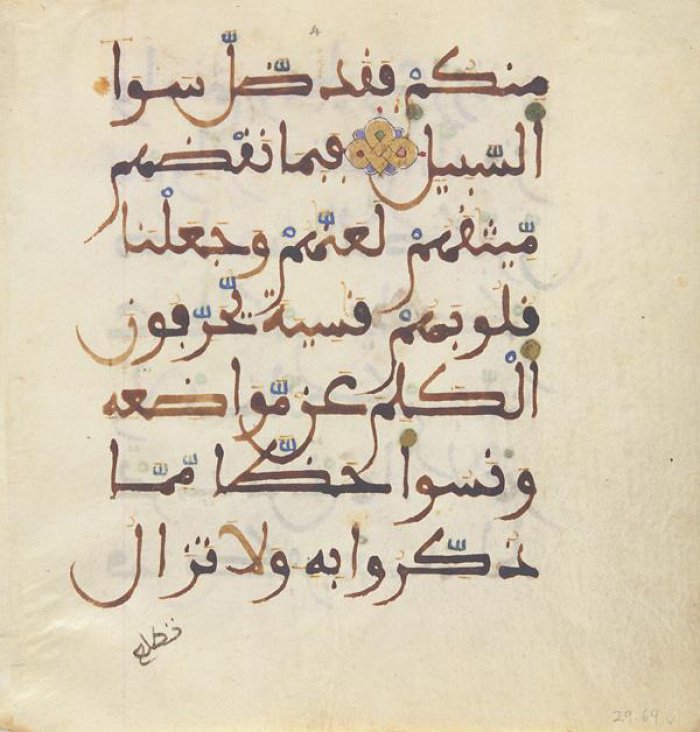 4
منكم فقد ضلّ سوا
السّبيل فبما نقضهم
مّيثقهم لعنّهم وجعلنا
قلوبهم قسية يّحرّفون
الكلم عن مّواضعه
ونسوا حظّا مّمّا
ذكّروا به ولا تزال
تطلع
29.69